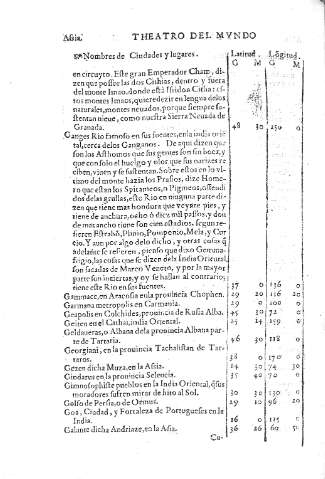 Asia. THEATRO DEL MVNDO
Nombres de Ciudades y lugares. Latitud. Lõgitud.
G M G M
en circuyto. Este gran Emperador Cham, di-
zen que possee las dos Cithias, dentro y fuera
del monte Imao, donde està
tos montes Imaos, quiere dezir en lengua de los
naturales, montes neuados, porque siempre su-
stentan nieue, como nuestra Sierra Neuada de
Granada. 48 30 150 0
Ganges Rio famoso en sus fuentes, en la india oriẽ
tal, cerca de los Ganganos. De aqui dizen que
son los Asthomos que sus gentes son sin boca, y
que con solo el huelgo y olor que sus narizes re
ciben, viuen y se sustentan. Sobre estos en lo vl-
timo del monte hazia los Prasios, dize Home-
ro que estan los Spitameos, o Pigmeos,
dos de las grullas, este Rio en ninguna parte di-
zen que tiene mas hondura que veynte pies, y
tiene de anchura, ocho ò diez mil passos, y don
de mas ancho tiene son cien estadios. segun re-
fieren Estrabõ, Plinio, Pomponio, Mela, y
rio. Y aun por algo de lo dicho, y otras cosas q̃
adelante se refieren, pienso que dixo
frigio, las cosas que se dizen de la India Oriental
son sacadas de Marco Veneto, y por la mayor
parte son inciertas, y oy se hallan al contrario;
tiene este Rio en sus fuentes. 37 0 136 0
Gammace, en Aracosia en la prouincia Chophen. 29 20 116 20
Garman metropoli en Carmania. 29 0 100 0
Geapolis en Colchides, prouincia de Rusia Alba. 45 30 72 0
Geiten en el Cathai, india Oriental. 25 14 159 0
Geldaueras, o Albana de la prouincia Albana par-
te de Tartaria. 46 30 118 0
Georgiani, en la prouincia Tachalistan de Tar-
taros. 38 0 170 0
Gezen dicha Muza, en la Assia. 14 30 74 30
Gindarus en la prouincia Seleucia. 35 40 70 0
Gimnosophiste pueblos en la India Oriental, q̃ sus
moradores sufren mirar de hito al Sol. 30 30 130 0
Golfo de Persia, o de Ormus. 29 10 96 20
Goa, Ciudad, y Fortaleza de Portugueses en la
India. 16 0 115 0
Galante dicha Andriaze, en la Asia. 36 26 60
Cu-